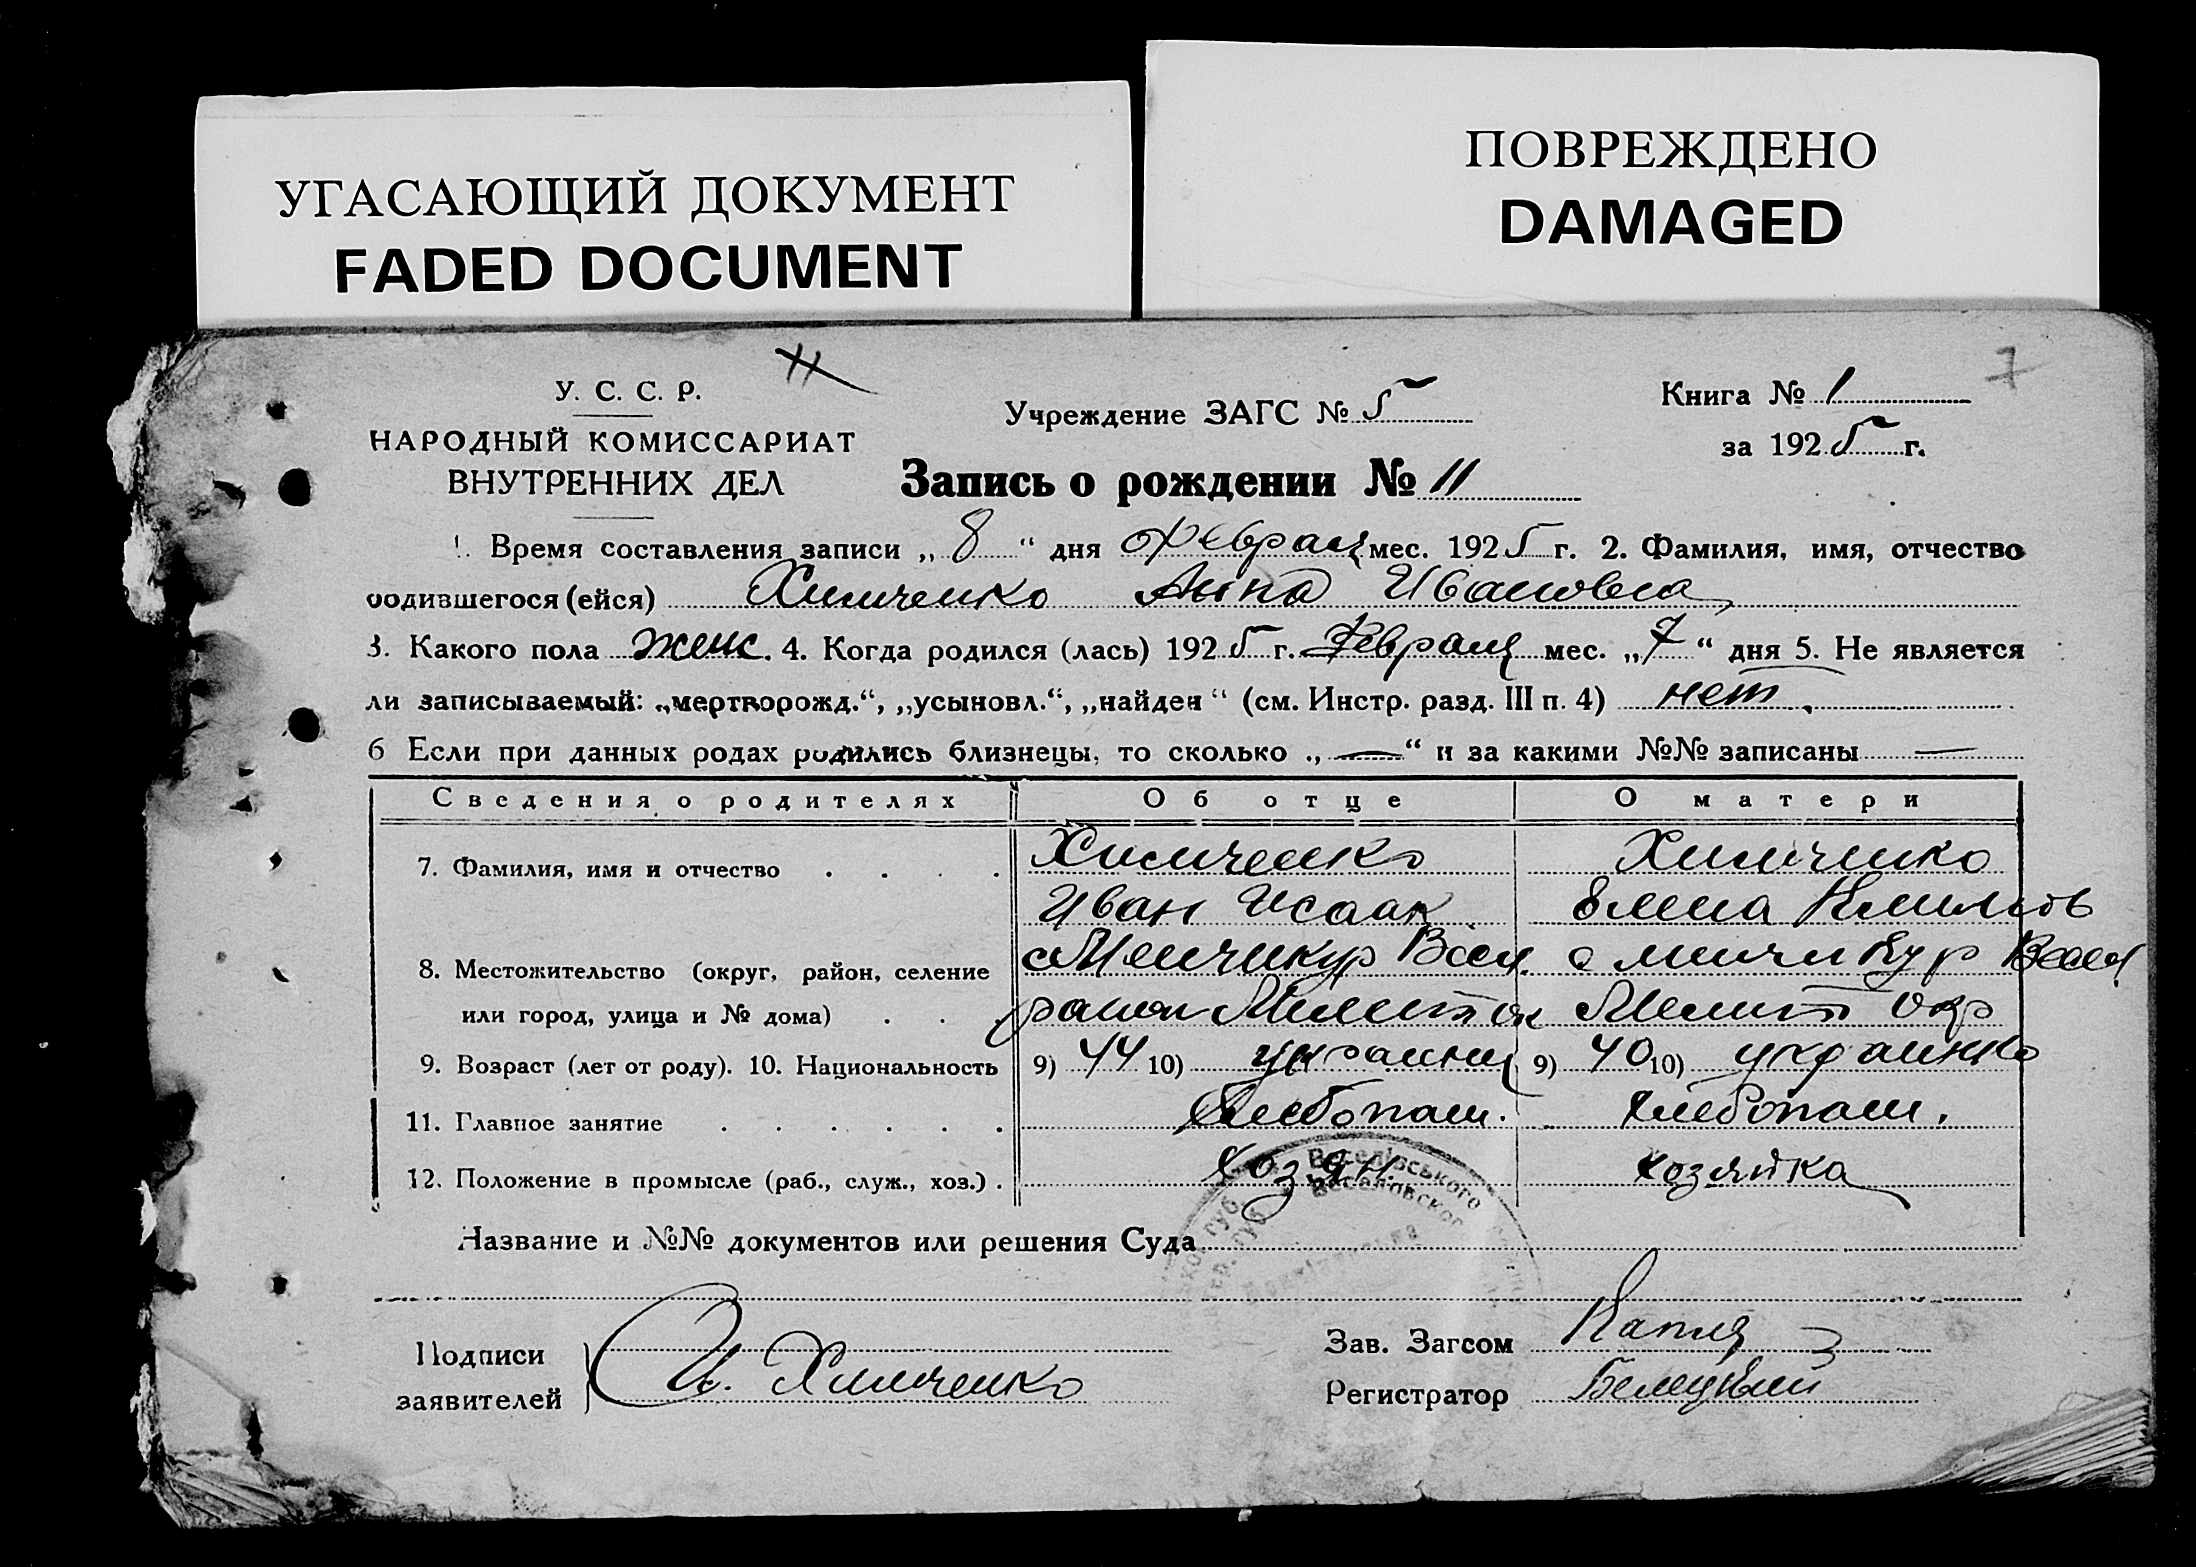 УГАСАЮЩИЙ ДОКУМЕНТ
FADED DOCUMENT
ПОВРЕЖДЕНО
DAMAGED
11
7
У. С. С. Р.
НАРОДНЫЙ КОМИССАРИАТ
ВНУТРЕННИХ ДЕЛ
Учреждение ЗАГС № 5
Книга № 1
за 1925 г.
Запись о рождении № 11
1. Время составления записи „8“ дня февраля мес. 1925 г. 2. Фамилия, имя, отчество
родившегося (ейся) Химченко Анна Ивановна
3. Какого пола женс. 4. Когда родился (лась) 1925 г. Февраля мес. „7“ дня 5. Не является
ли записываемый: „мертворожд.“, „усыновл.“, „найден“ (см. Инстр. разд. III п. 4) нет.
6 Если при данных родах родились близнецы, то сколько „—“ и за какими №№ записаны —
Сведения о родителях Об отце О матери
7. Фамилия, имя и отчество . . . . Химченко Химченко
Иван Исаак Елена Климов
8. Местожительство (округ, район, селение с Менчикур Весел. с Менчикур Весел
или город, улица и № дома) . . . район Мелиток Мелит окр
9. Возраст (лет от роду). 10. Национальность 9) 44 10) украинц 9) 40 10) украинка
11. Главное занятие . . . . . . Хлебопаш. Хлебопаш.
12. Положение в промысле (раб., служ., хоз.) . Хозяин. Хозяйка
Веселівського
Веселовског
Название и №№ документов или решения Суда
Подписи
заявителей
И. Химченко
Зав. Загсом Капля
Регистратор Белецкий